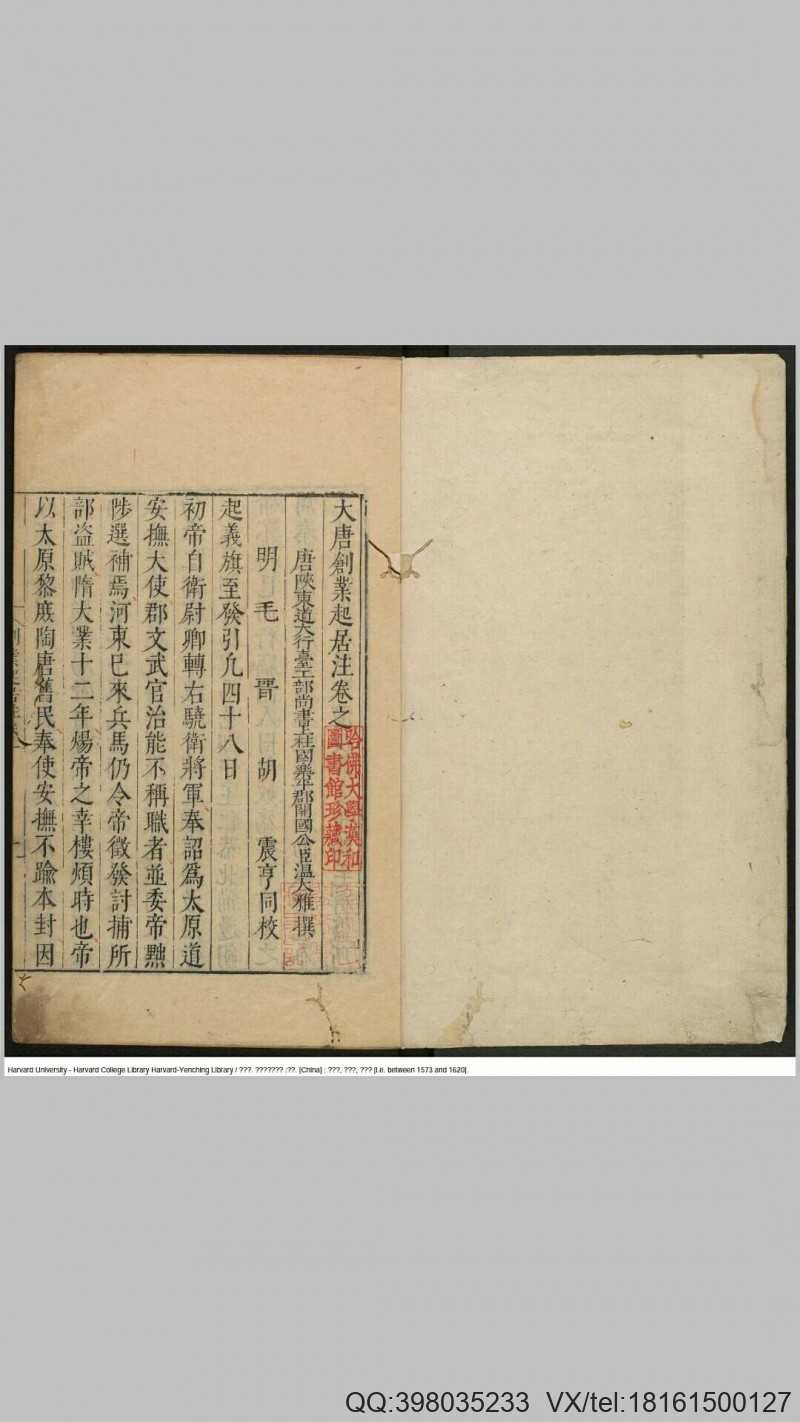 大唐創業起居注卷之
唐陝東道大行臺工部尚書上柱國樂平郡開國公臣溫大雅撰
明 毛 晋 胡 震亨同校
起義旗至發引凢四十八日
初帝自衛尉卿轉右驍衛將軍奉詔爲太原道
安撫大使郡文武官治能不稱職者並委帝黜
陟選補焉河東已來兵馬仍令帝徵發討捕所
部盜賊隋大業十二年煬帝之幸樓煩時也帝
以太原黎庶陶唐舊民奉使安撫不踰本封因
哈佛大學漢和
圖書館珍藏印
Harvard University - Harvard College Library Harvard-Yenching Library / ???. ??????? :??. [China] : ???, ???, ??? [i.e. between 1573 and 1620].
QQ:398035233 VX/tel:18161500127